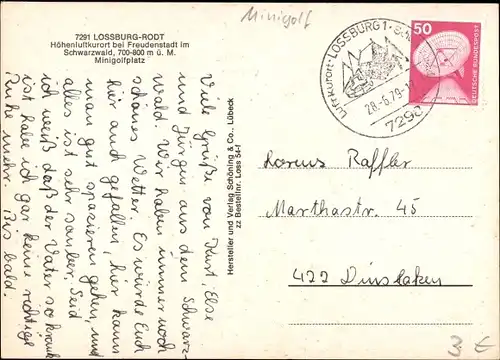 Minigolf
7291 LOSSBURG-RODT
Höhenluftkurort bei Freudenstadt im
Schwarzwald, 700-800 m ü. M.
Minigolfplatz
Viele Grüße von Kurt, Else
und Jürgen aus dem Schwarz-
wald. Wir haben immer noch
schönes Wetter. Es würde Euch
hier auch gefallen, hier kann
man gut spazieren gehen, und
alles ist sehr sauber. Seid
ich weiß daß der Vater so krank
ist habe ich gar keine richtige
Ruhe mehr. Bis bald.
Hersteller und Verlag Schöning & Co., Lübeck
zz Bestellnr. Loss 54-f
Luftkurort · LOSSBURG 1
28.-6.79
7298
50
DEUTSCHE BUNDESPOST
Lorenz Raffler
Marthastr. 45
422 Dinslaken
3 €